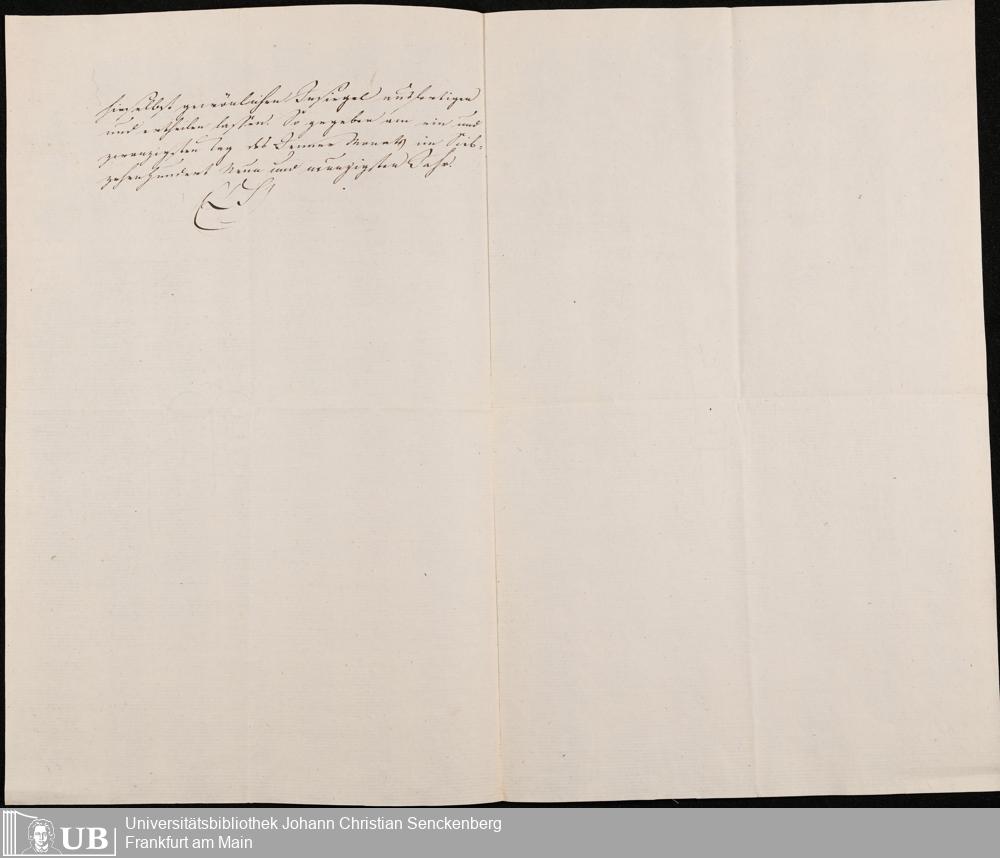 hieselbst gewönlichen Insiegel ausfertigen
und ertheilen lassen. So gegeben am ein und
zwanzigsten Tag des Jenner Monats im Sieb-
zehenhundert Neun und neunzigsten Jahr.
LS
UB
Universitätsbibliothek Johann Christian Senckenberg
Frankfurt am Main